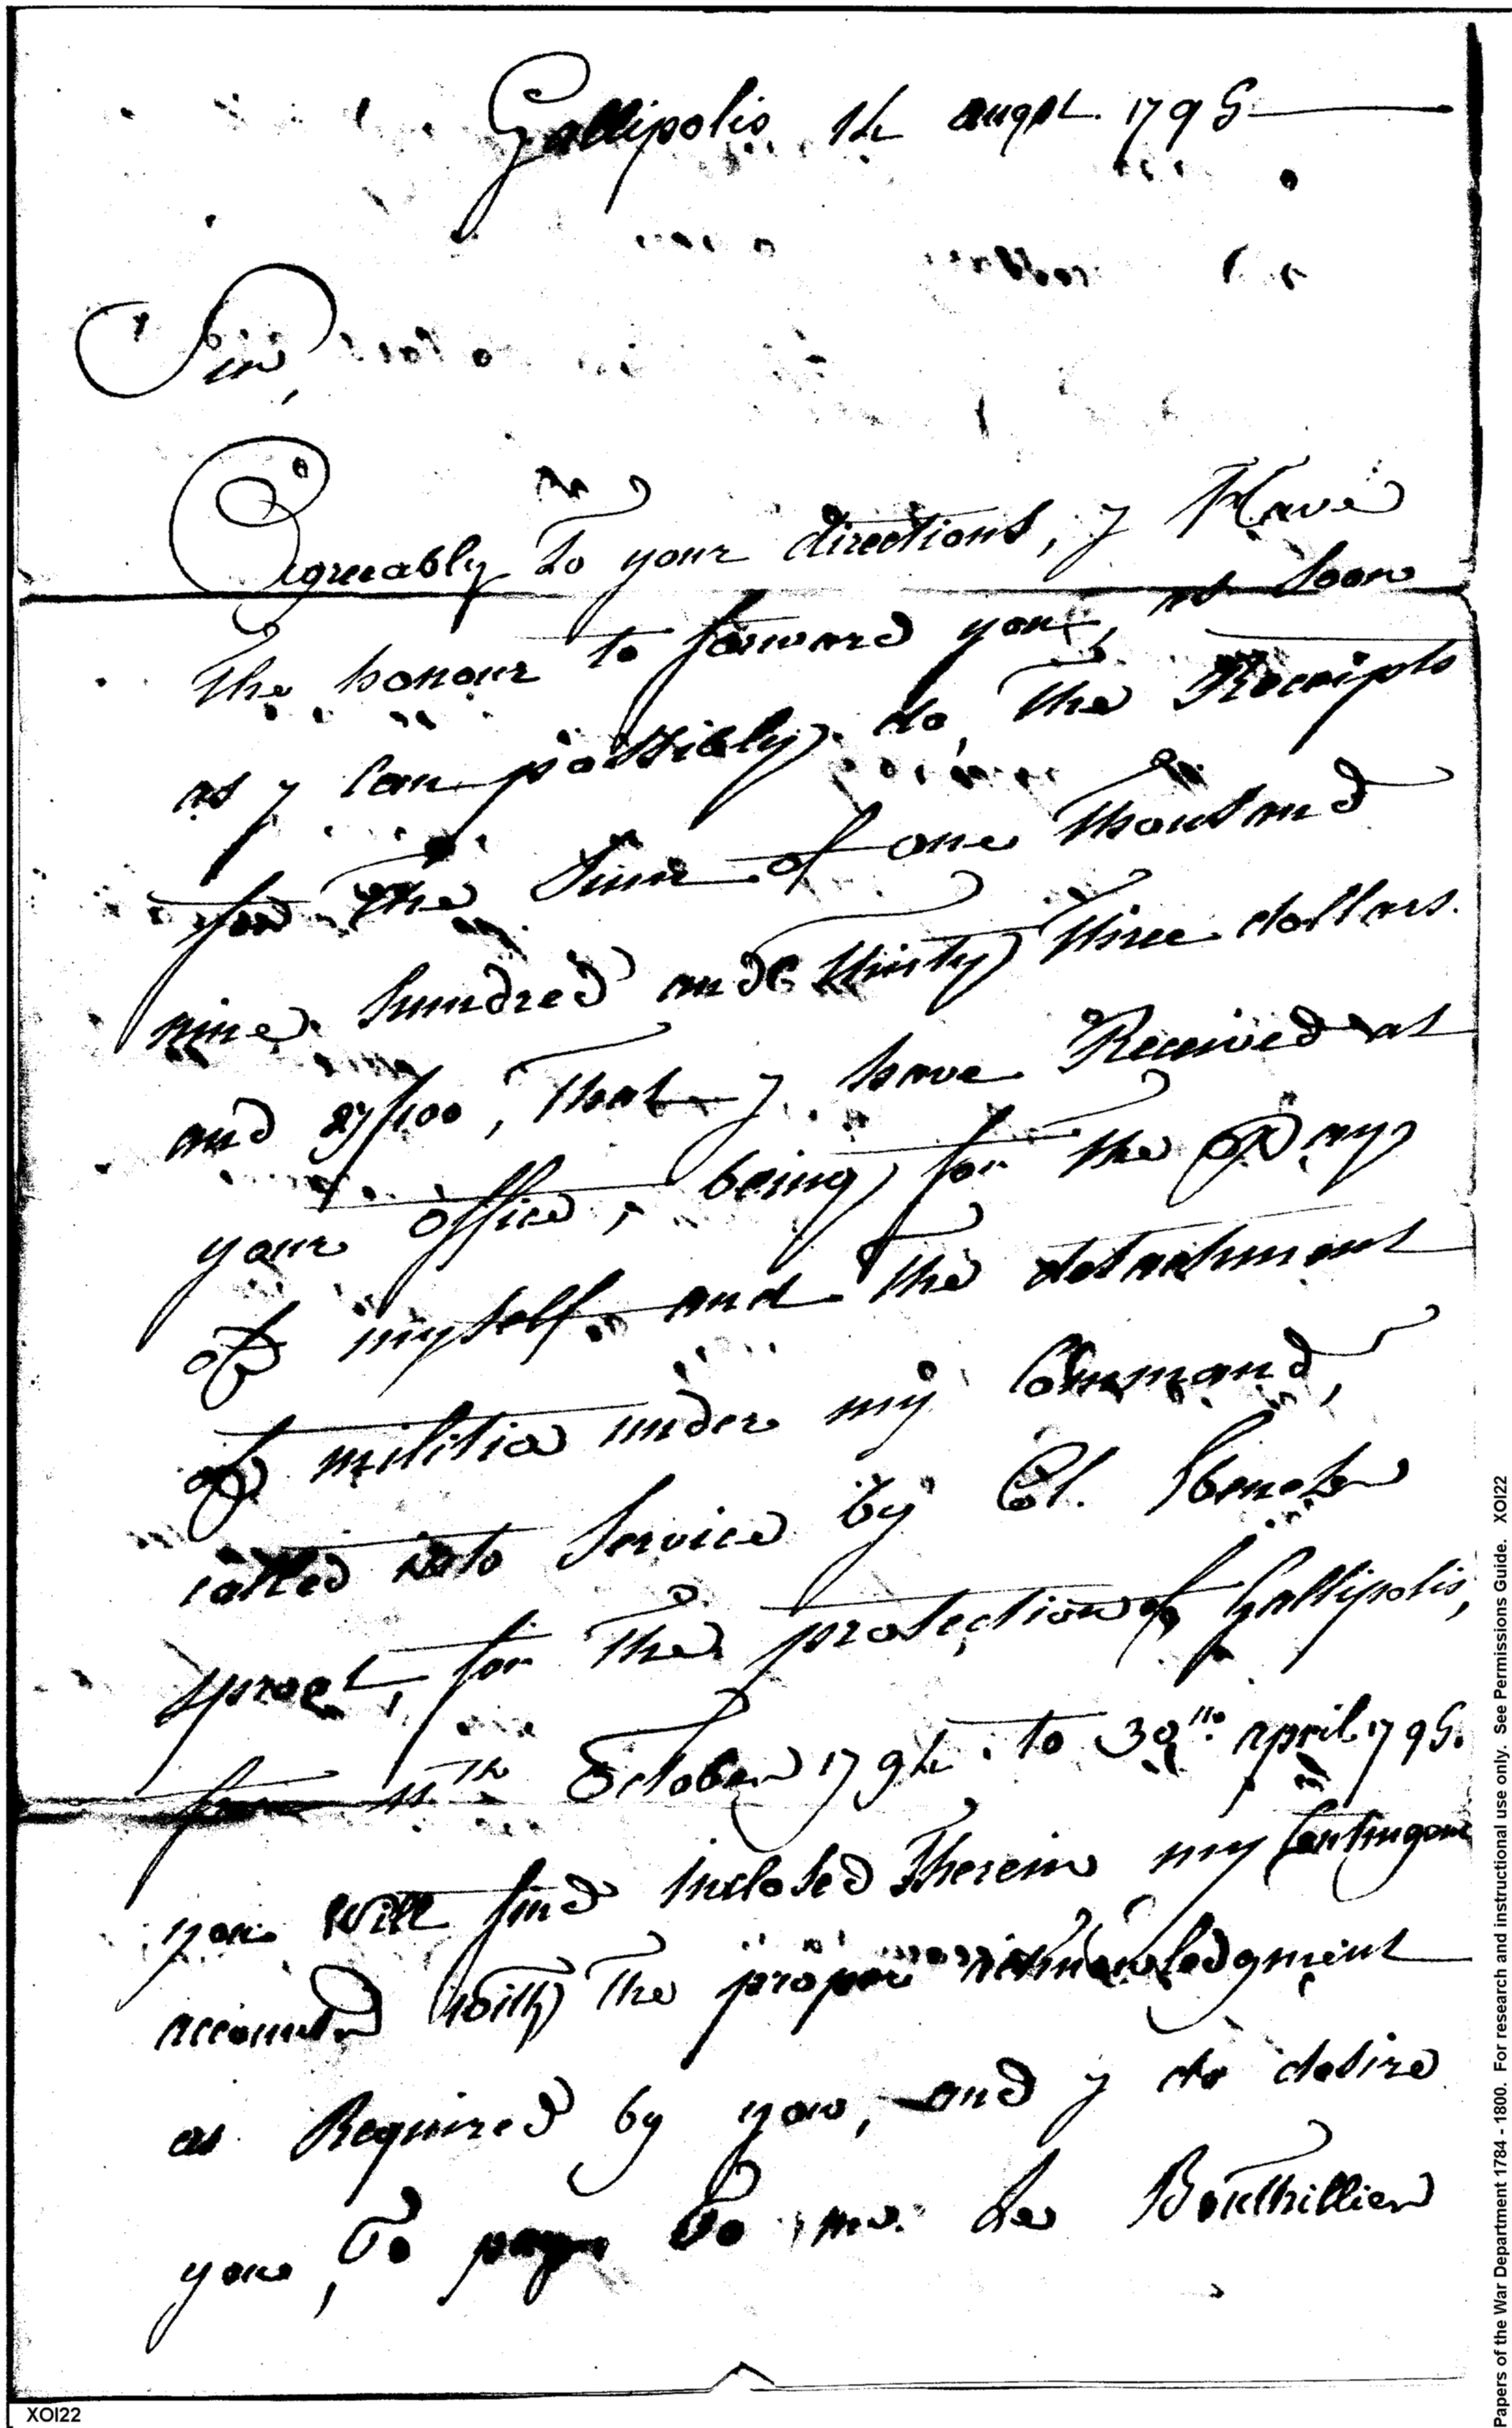 Gallipolis 14 augst. 1795
Sir,
Agreeably To your directions, y Have
The honour to forward you, as Soon
as y Can possibly do, The Receipts
for The Sum of one Thousand
nine hundred and thirty Three dollars.
and 27/100, That y have Received at
your office, being for The Pay
of myself and The detachment
of militia under my Command,
called into Service by Col.
for The protection of Gallipolis,
from October 1794. to 30th. april 1795.
you will find inclosed Therein my Contingent
accounts with The proper acknowledgment
as Required by you, and y do desire
you, To pay To mr. Le Bouthillier
XOI22
Papers of the War Department 1784 - 1800. For research and instructional use only. See Permissions Guide. XOI22